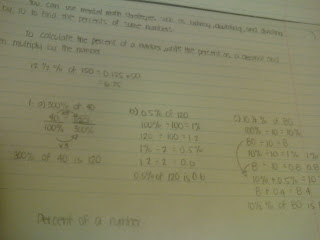 You can use mental math strategies such as halving, doubling, and dividing
by 10 to find the percents of some numbers.
To calculate the percent of a number, write the percent as a decimal and
multiply by the number.
of 150 = 0.125 ×
1. a) 300% of 40
100% 300%
300% of 40 is 120
b) 0.5% of 120
100% ÷ 100 = 1%
120 ÷ 100 = 1.2
1% ÷ 2 = 0.5%
1.2 ÷ 2 = 0.6
0.5% of 120 is 0.6
% of 80
100% ÷ 10 = 10%
80 ÷ 10 = 8
10% ÷ 10 = 1%
8 ÷ 10 = 0.8
10% + 0.5% =
8 + 0.4 = 8.4
% of 80 is
Percent of a number